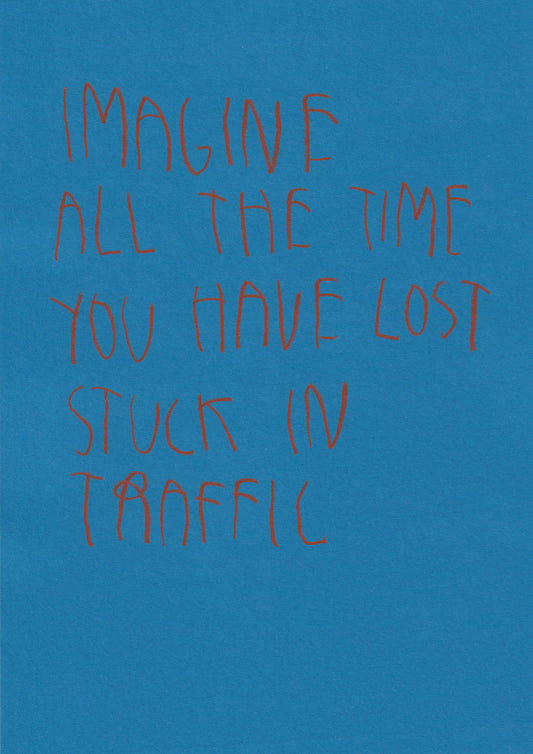 IMAGINE
ALL THE TIME
YOU HAVE LOST
STUCK IN
TRAFFIC